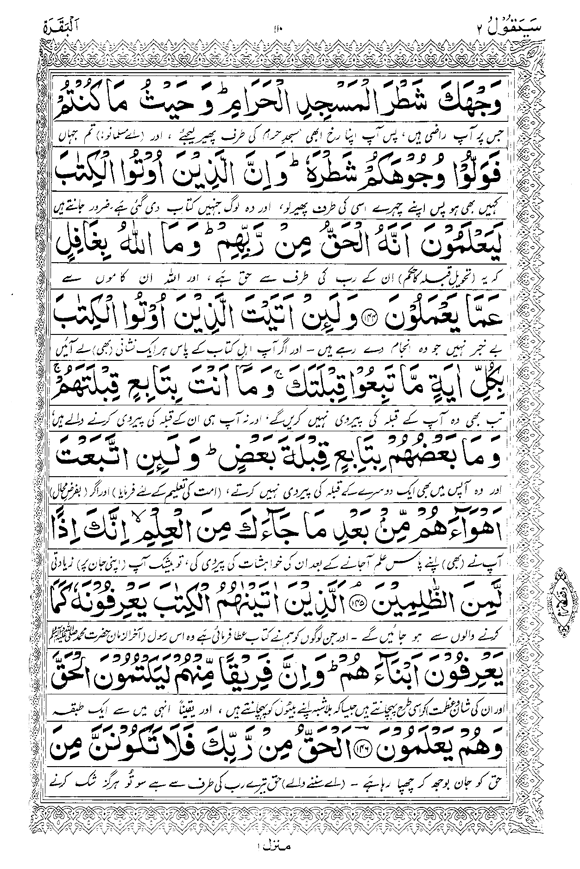 سَيَقُوْلُ ٢
١٠
اَلْبَقَرَة
وَجْهَكَ شَطْرَ الْمَسْجِدِ الْحَرَامِ ؕ وَ حَيْثُ مَا كُنْتُمْ
جس پر آپ راضی ہیں، پس آپ اپنا رخ ابھی مسجدِ حرام کی طرف پھیر لیجئے، اور (اے مسلمانو!) تم جہاں
فَوَلُّوْا وُجُوْهَكُمْ شَطْرَهٗ ؕ وَ اِنَّ الَّذِيْنَ اُوْتُوا الْكِتٰبَ
کہیں بھی ہو پس اپنے چہرے اسی کی طرف پھیر لو، اور وہ لوگ جنہیں کتاب دی گئی ہے ضرور جانتے ہیں
لَيَعْلَمُوْنَ اَنَّهُ الْحَقُّ مِنْ رَّبِّهِمْ ؕ وَ مَا اللّٰهُ بِغَافِلٍ
کہ یہ (تحویلِ قبلہ کا حکم) ان کے رب کی طرف سے حق ہے، اور اللہ ان کاموں سے
عَمَّا يَعْمَلُوْنَ ﴿۱۴۴﴾ وَ لَئِنْ اَتَيْتَ الَّذِيْنَ اُوْتُوا الْكِتٰبَ
بے خبر نہیں جو وہ انجام دے رہے ہیں۔ اور اگر آپ اہلِ کتاب کے پاس ہر ایک نشانی (بھی) لے آئیں
بِكُلِّ اٰيَةٍ مَّا تَبِعُوْا قِبْلَتَكَ ۚ وَ مَاۤ اَنْتَ بِتَابِعٍ قِبْلَتَهُمْ ۚ
تب بھی وہ آپ کے قبلہ کی پیروی نہیں کریں گے، اور نہ آپ ہی ان کے قبلہ کی پیروی کرنے والے ہیں
وَ مَا بَعْضُهُمْ بِتَابِعٍ قِبْلَةَ بَعْضٍ ؕ وَ لَئِنِ اتَّبَعْتَ
اور وہ آپس میں بھی ایک دوسرے کے قبلہ کی پیروی نہیں کرتے، (امت کی تعلیم کے لئے فرمایا) اور اگر (بفرضِ محال)
اَهْوَآءَهُمْ مِّنْۢ بَعْدِ مَا جَآءَكَ مِنَ الْعِلْمِ ۙ اِنَّكَ اِذًا
آپ نے (بھی) اپنے پاس علم آجانے کے بعد ان کی خواہشات کی پیروی کی، تو بیشک آپ (اپنی جان پر) زیادتی
لَّمِنَ الظّٰلِمِيْنَ ﴿۱۴۵﴾ اَلَّذِيْنَ اٰتَيْنٰهُمُ الْكِتٰبَ يَعْرِفُوْنَهٗ كَمَا
کرنے والوں سے ہو جائیں گے۔ اور جن لوگوں کو ہم نے کتاب عطا فرمائی ہے وہ اس رسول (آخر الزمان حضرت محمد ﷺ
يَعْرِفُوْنَ اَبْنَآءَهُمْ ؕ وَ اِنَّ فَرِيْقًا مِّنْهُمْ لَيَكْتُمُوْنَ الْحَقَّ
اور ان کی شان و عظمت) کو اسی طرح پہچانتے ہیں جیسا کہ بلاشبہ اپنے بیٹوں کو پہچانتے ہیں، اور یقیناً انہی میں سے ایک طبقہ
وَ هُمْ يَعْلَمُوْنَ ﴿۱۴۶﴾ اَلْحَقُّ مِنْ رَّبِّكَ فَلَا تَكُوْنَنَّ مِنَ
حق کو جان بوجھ کر چھپا رہا ہے۔ (اے سننے والے) حق تیرے رب کی طرف سے ہے سو تو ہرگز شک کرنے
منزل ١